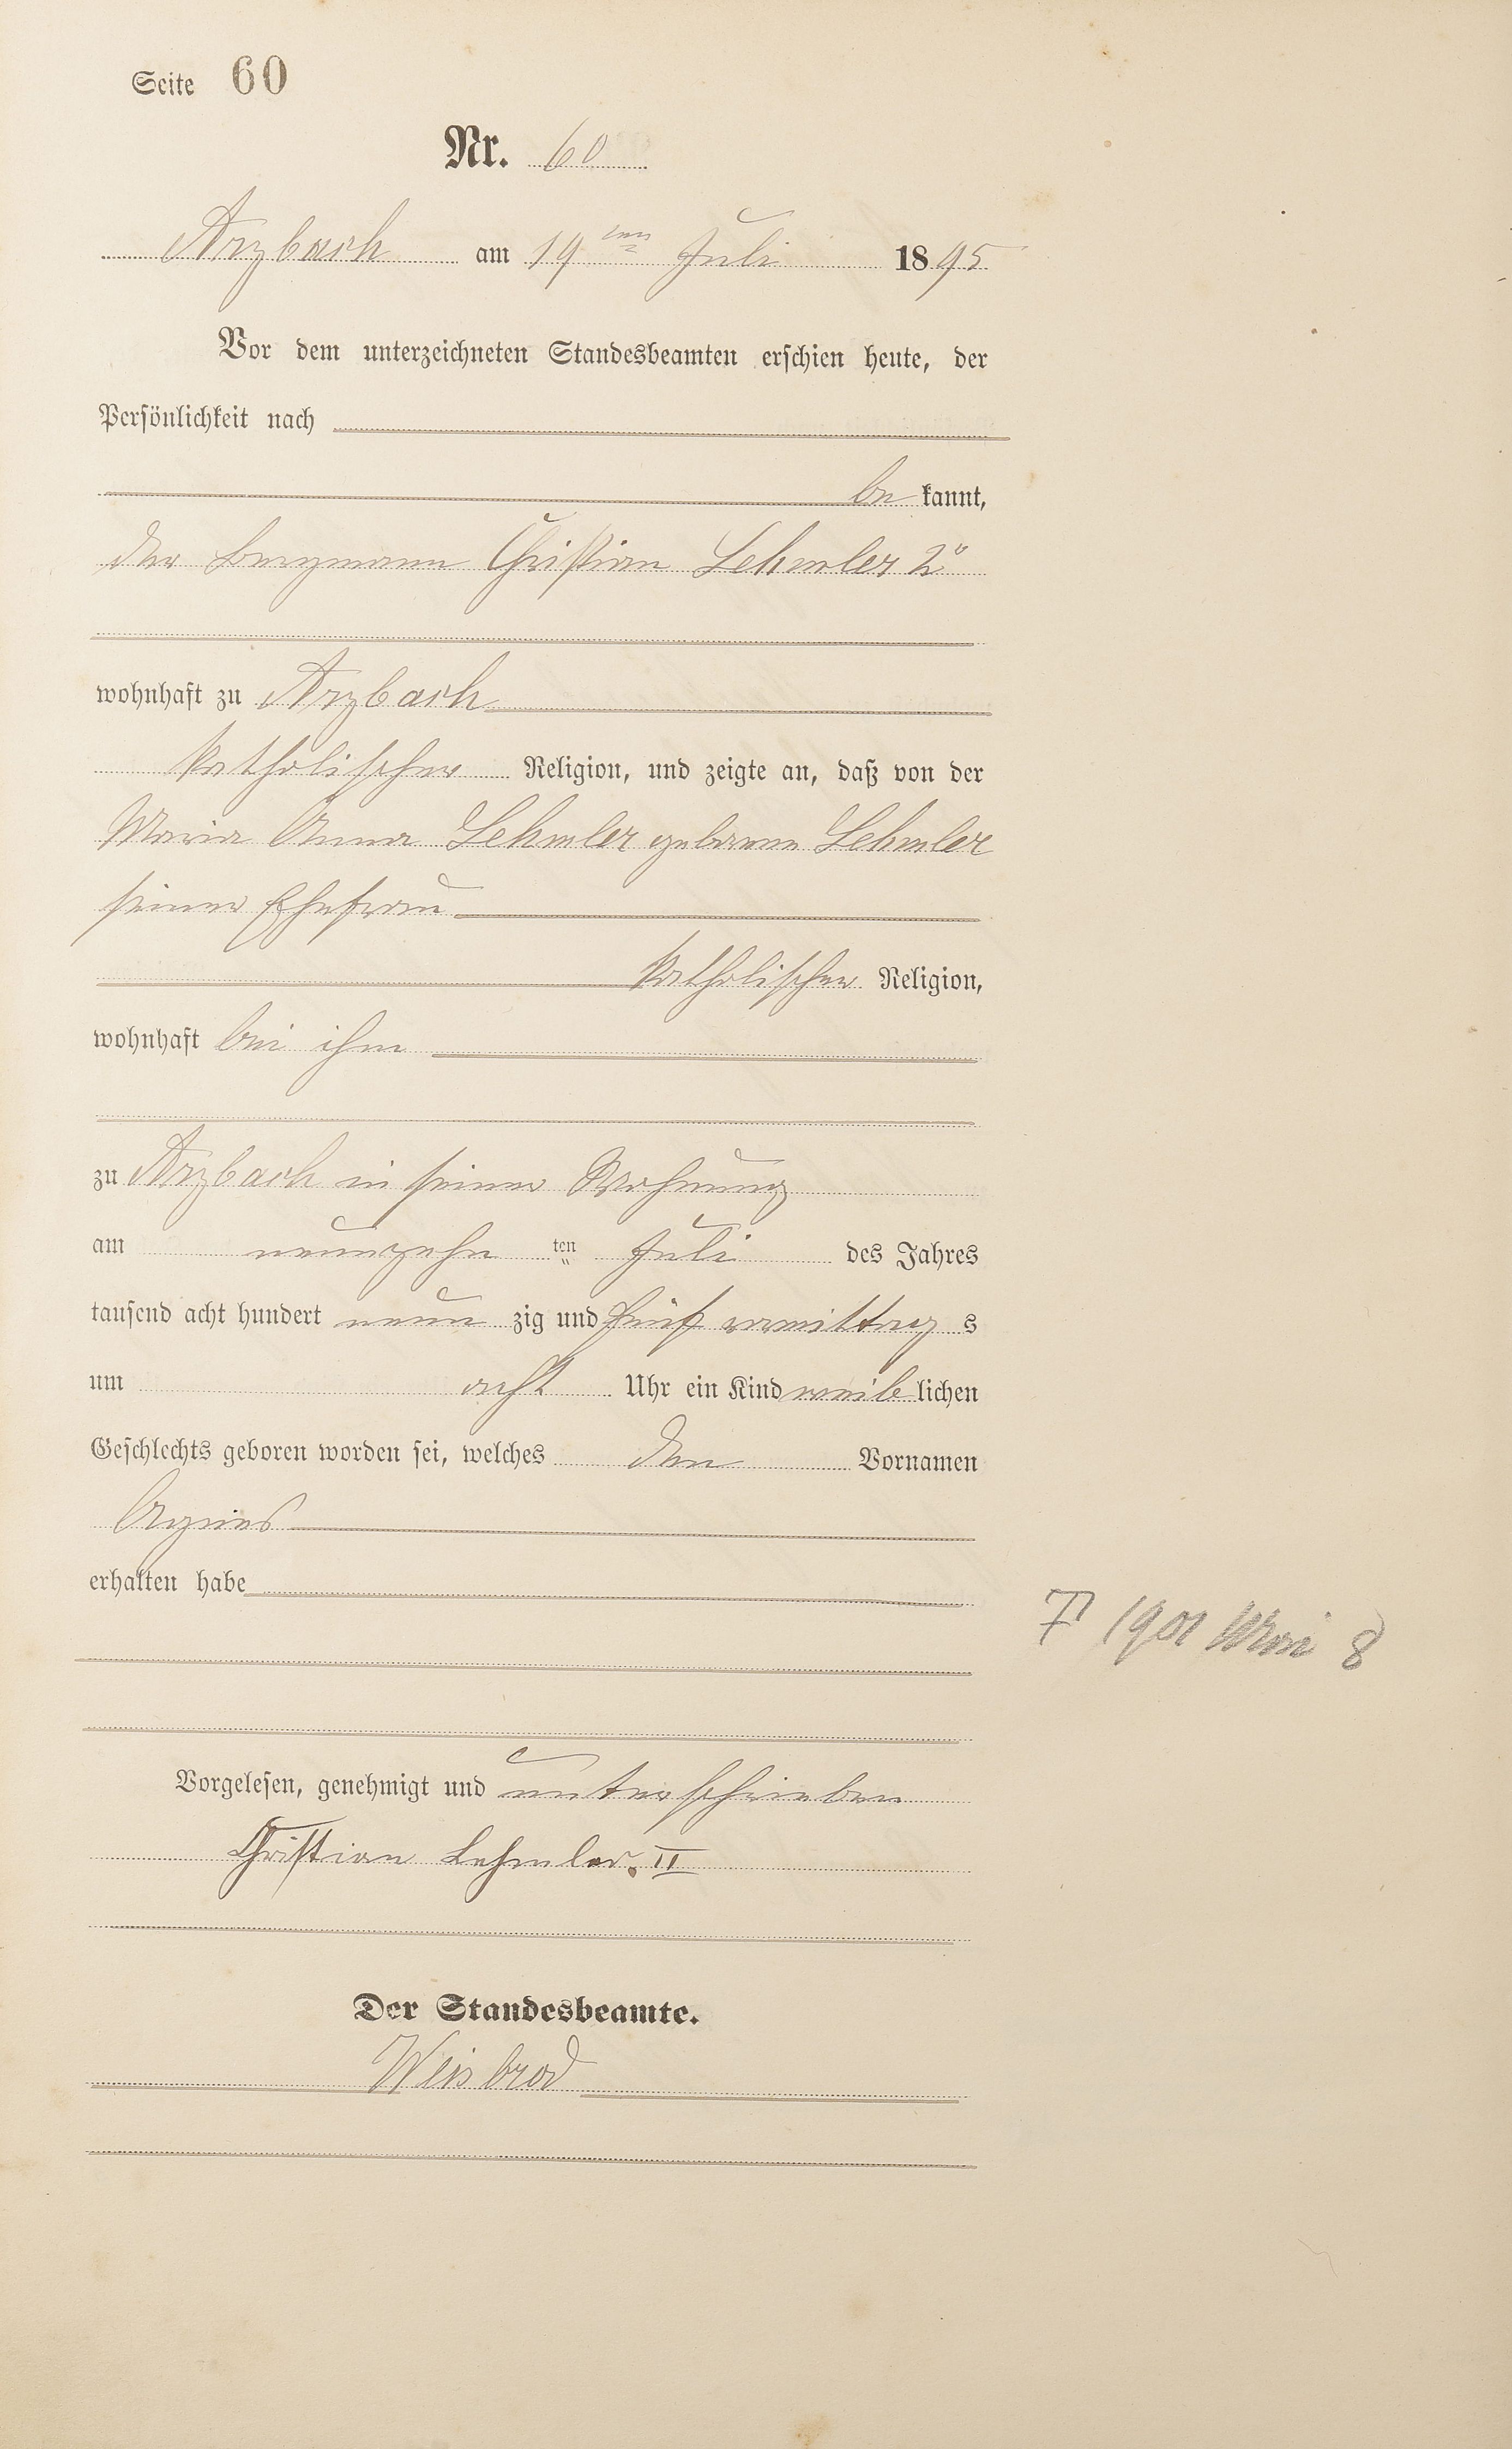 Seite 60
Nr. 60
Arzbach am 19ten Juli 1895
Vor dem unterzeichneten Standesbeamten erschien heute, der
Persönlichkeit nach
be kannt,
der Bergmann Christian Lehmler 2r
wohnhaft zu Arzbach
katholischer Religion, und zeigte an, daß von der
Maria Anna Lehmler geborene Lehmler
seiner Ehefrau
katholischer Religion,
wohnhaft bei ihm
zu Arzbach in seiner Wohnung
am neunzehn ten Juli des Jahres
tausend acht hundert neun zig und fünf vormittag s
um acht Uhr ein Kind weib lichen
Geschlechts geboren worden sei, welches den Vornamen
Agnes
erhalten habe
1901 Mai 8
Vorgelesen, genehmigt und unterschrieben
Christian Lehmler. II
Der Standesbeamte.
Weisbrod